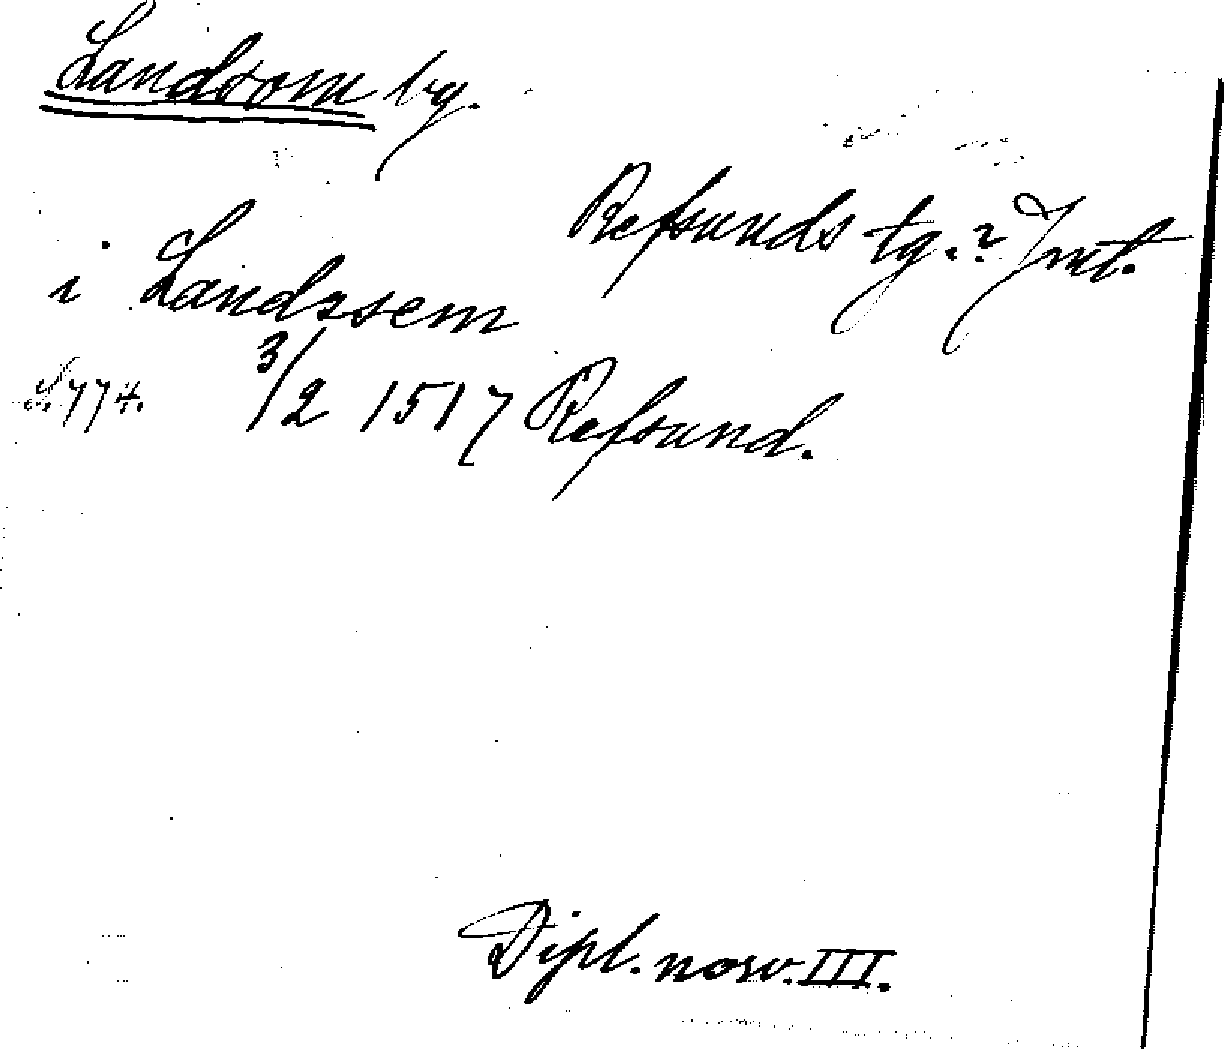 Landsom by.
Refsunds tg.? Jmt.
i Landssem
S. 774. 3/2 1517 Refsund.
Dipl. norv. III.